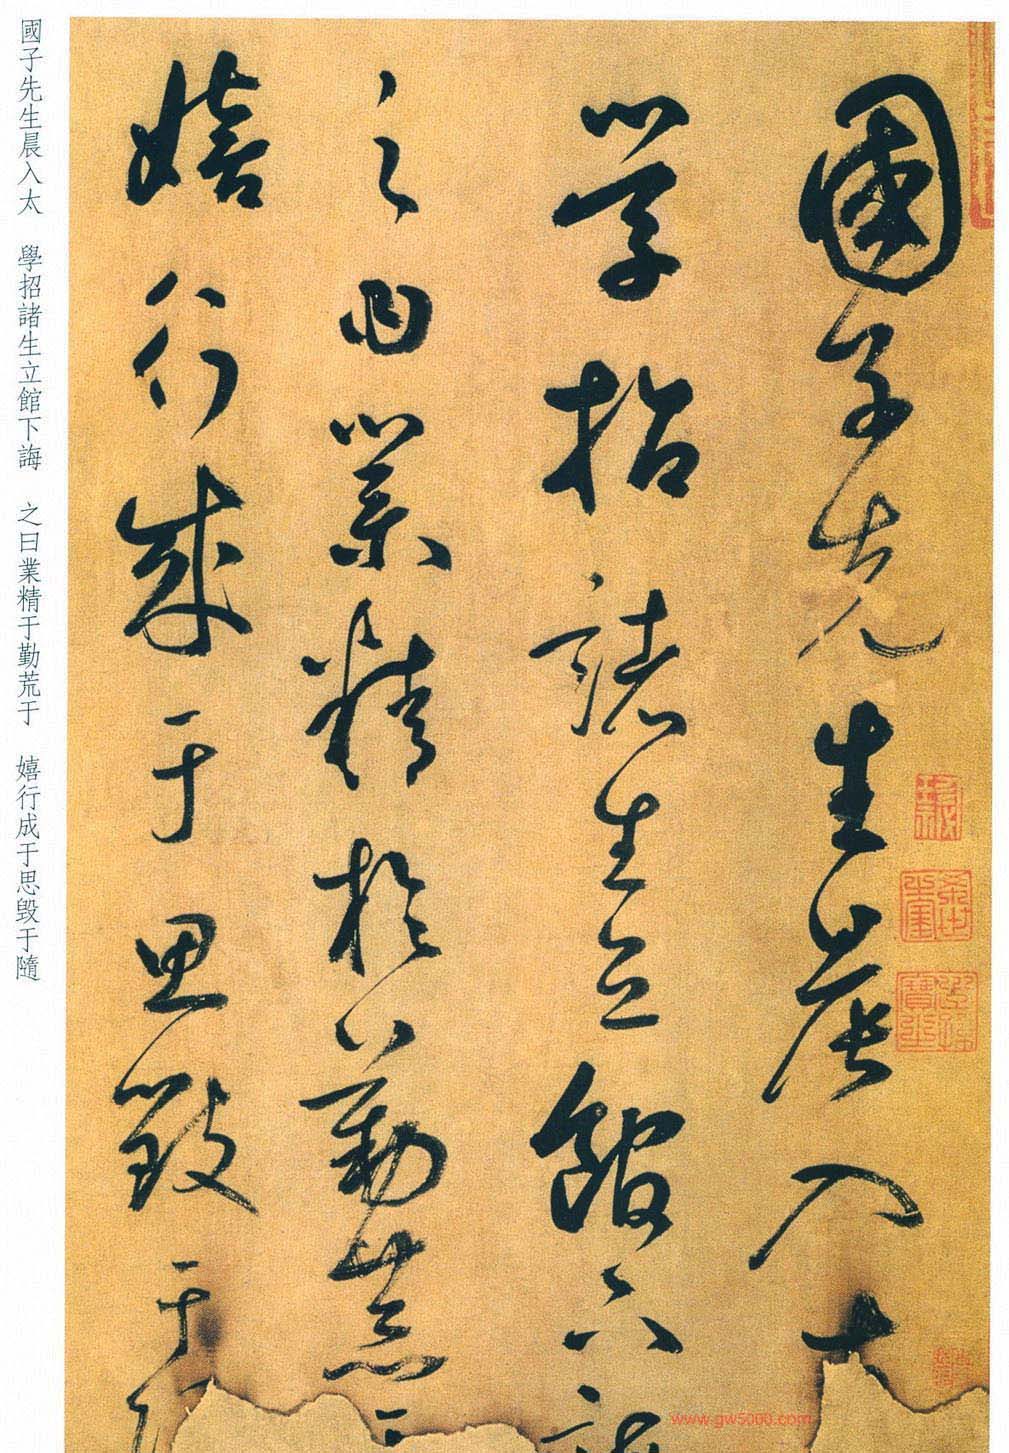 國子先生晨入太
學招諸生立館下誨
之曰業精於勤荒于
嬉行成于思毀于隨
國子先生晨入太 學招諸生立館下誨 之曰業精于勤荒于 嬉行成于思毀于隨
www.gw5000.com